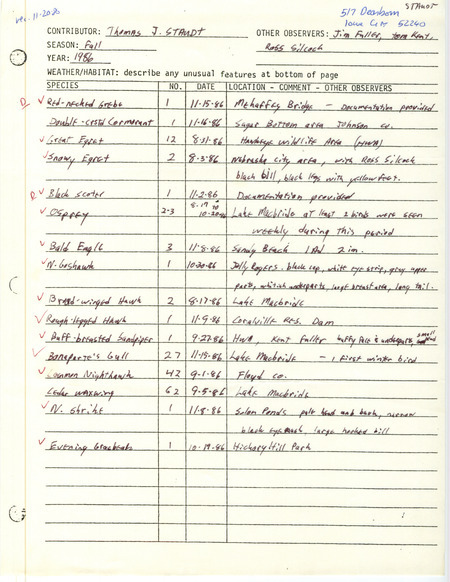 STAUDT
rec. 11-20-86
517 Dearborn
Iowa City 52240
CONTRIBUTOR: Thomas J. STAUDT OTHER OBSERVERS: Jim Fuller, Tom Kent,
SEASON: Fall Ross Silcock
YEAR: 1986
WEATHER/HABITAT: describe any unusual features at bottom of page
SPECIES NO. DATE LOCATION - COMMENT - OTHER OBSERVERS
D ✓ Red-necked Grebe 1 11-15-86 Mehaffey Bridge - Documentation provided
Double-crstd Cormorant 1 11-16-86 Sugar Bottom area Johnson co.
✓ Great Egret 12 8-31-86 Hawkeye wildlife Area (HWA)
✓ Snowy Egret 2 8-3-86 Nebraska city area, with Ross Silcock
black bill, black legs with yellow feet.
D ✓ Black scoter 1 11-2-86 Documentation provided
✓ Osprey 2-3 8-17 to 10-20-86 Lake Macbride at least 2 birds were seen
weekly during this period
✓ Bald Eagle 3 11-8-86 Sandy Beach 1 Ad 2 im.
✓ N. Goshawk 1 10-20-86 Jolly Rogers. black cap, white eye strip, gray upper
parts, whitish underparts, large breast area, long tail.
✓ Broad-winged Hawk 2 8-17-86 Lake Macbride
✓ Rough-legged Hawk 1 11-9-86 Coralville Res. Dam
✓ Buff-breasted Sandpiper 1 9-27-86 HWA, Kent Fuller buffy face & underparts small
✓ Bonaparte's Gull 27 11-15-86 Lake Macbride - 1 first winter bird
✓ Common Nighthawk 42 9-1-86 Floyd co.
Cedar waxwing 62 9-5-86 Lake Macbride
✓ N. Shrike 1 11-8-86 Solon Ponds pale head and back, narrow
black eye mask, large hooked bill
✓ Evening Grosbeak 1 10-19-86 Hickory Hill Park